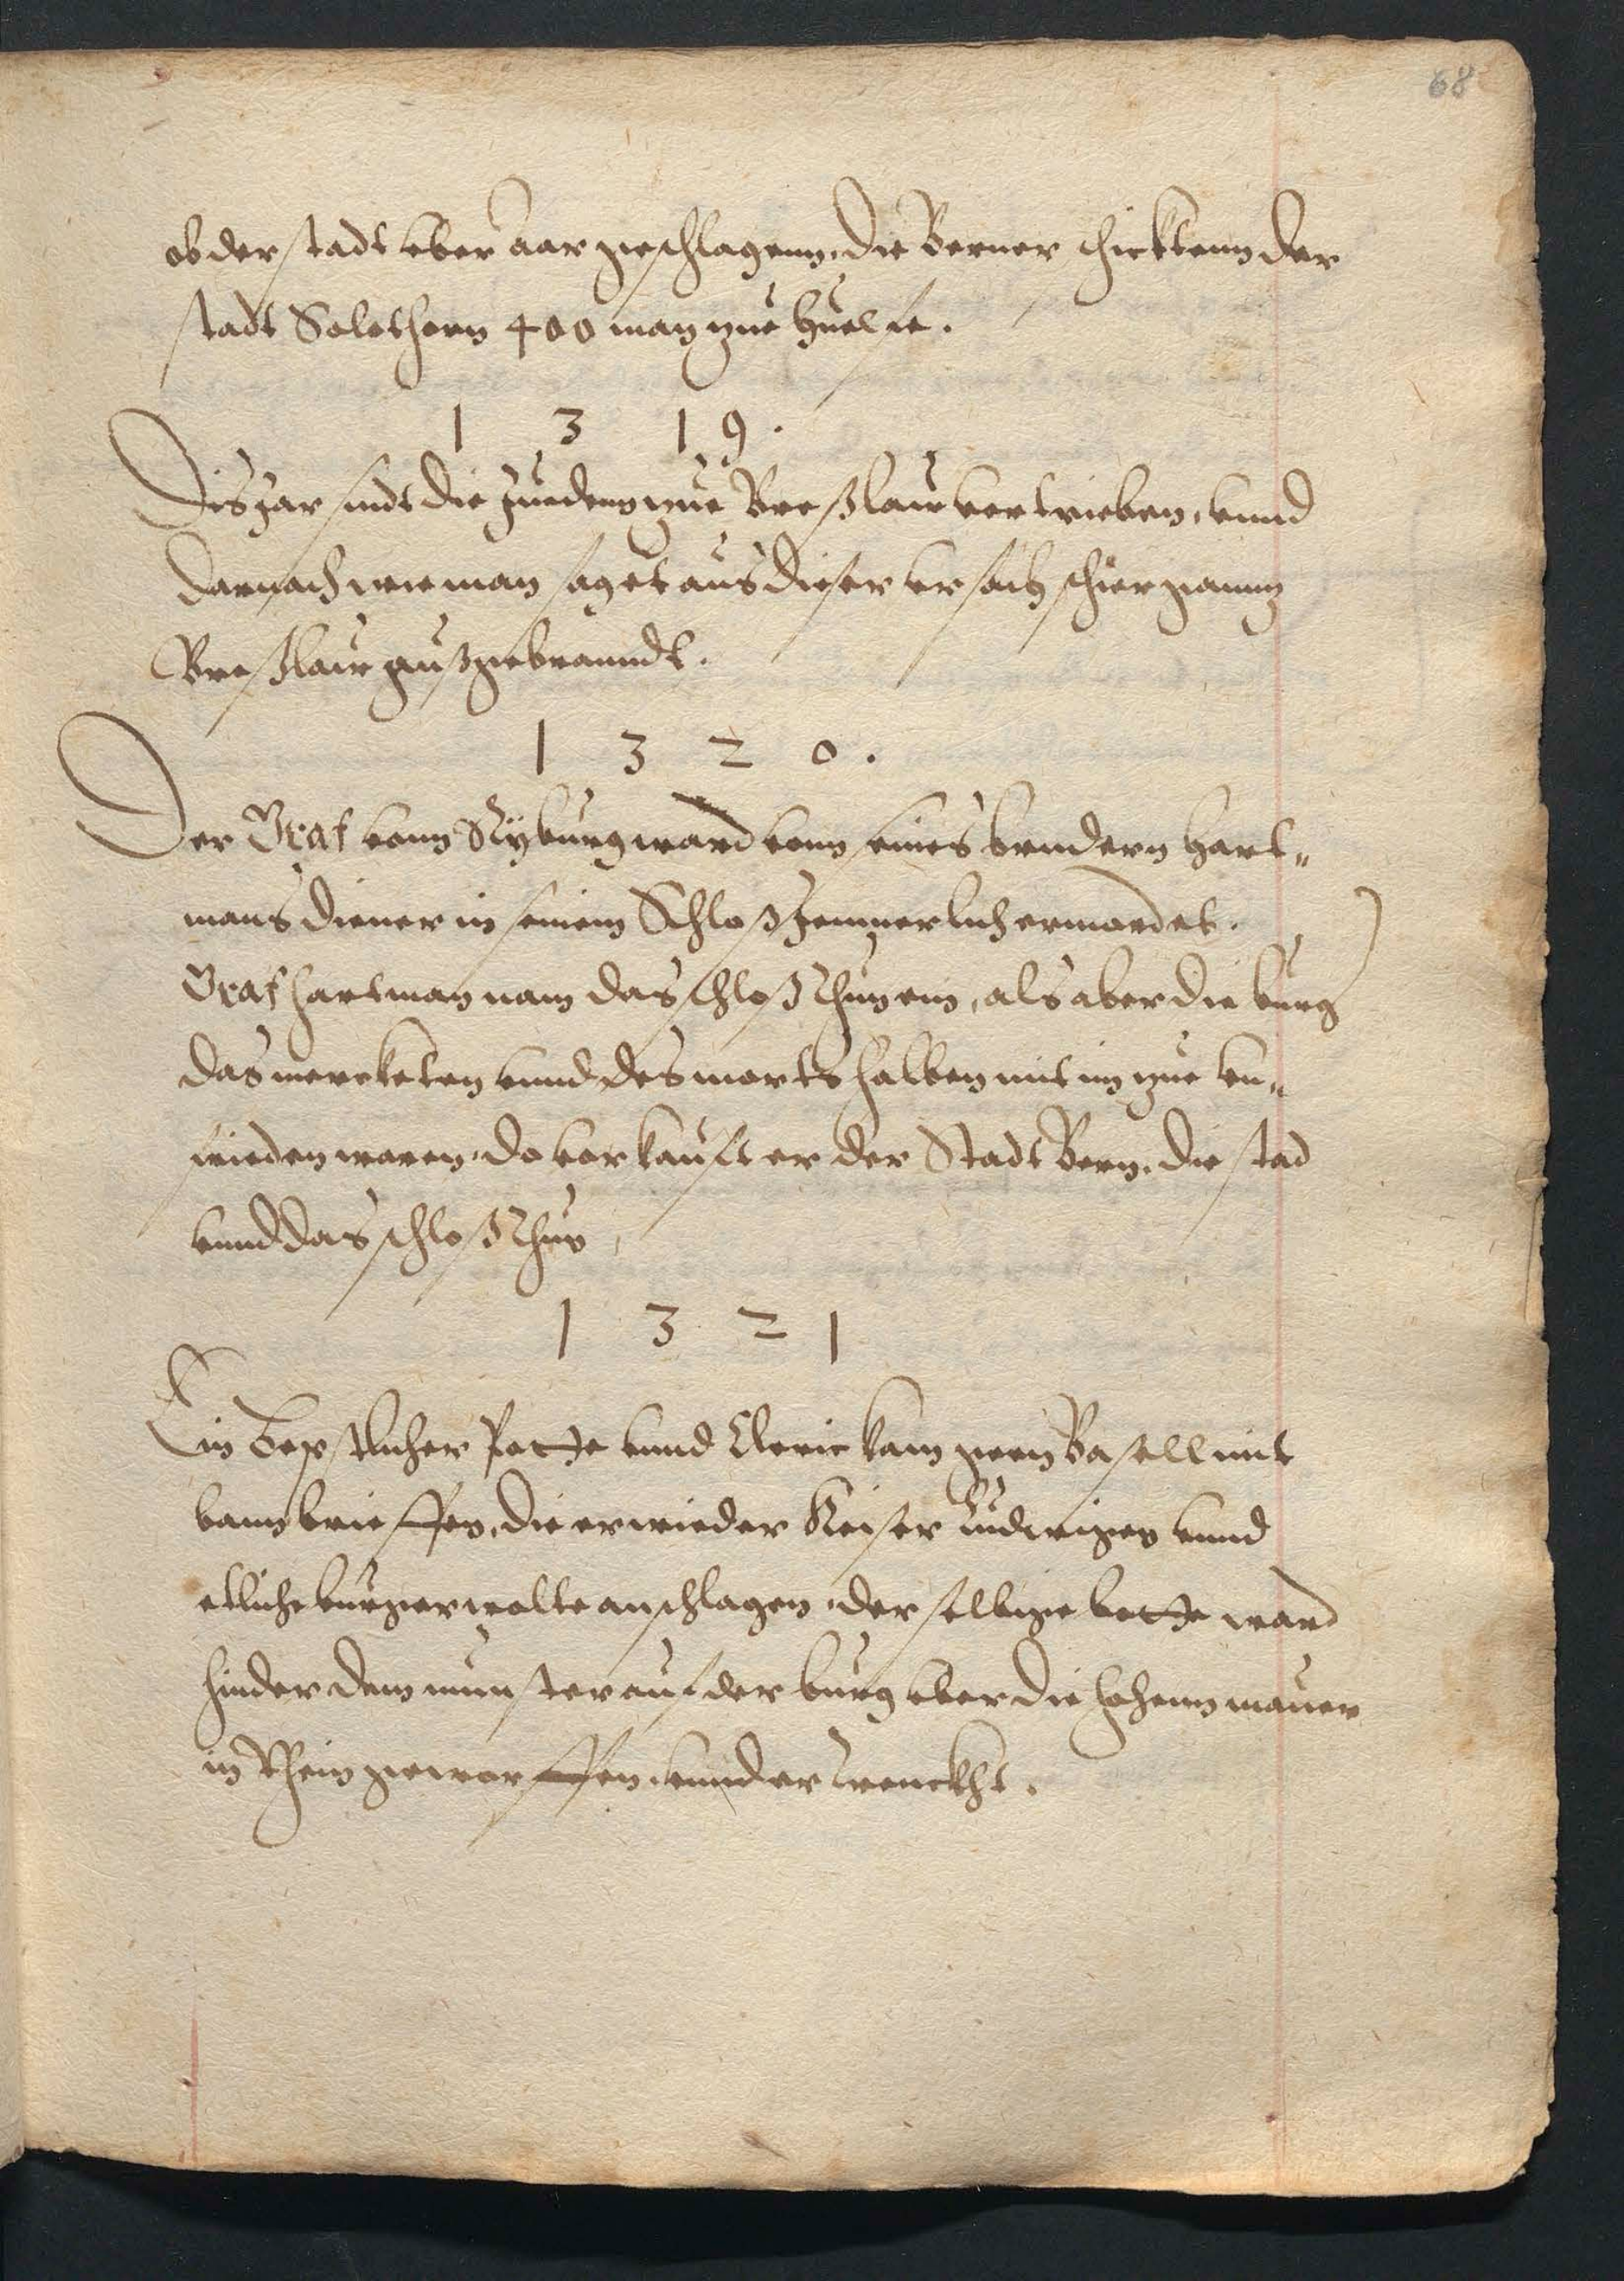 68
ob der stadt vber aar geschlagenn. die Berner schicktenn der
stadt Solothorn 400 man zue huelfe.
1 3 1 9.
Dis Jar sindt die Jueden zue Breßlaw vertrieben, vnnd
darnach wie man saget aus dieser vrsach schier gannz
Breßlaw außgebranndt.
1 3 2 0.
Der Graf vonn Kyburg ward vonn seines bruedern Hart„
mans diener in seinem Schloß Jemmerlich ermordet.
Graf Hartman nam das schloß Thun ein, als aber die burg
das mercketen vnnd des morts halben mit im zue vn„
frieden waren. do verkaufft er der Stadt Bern. die stad
vnnd das schloß Thun
1 3 2 1
Ein Bepstlicher Potte vnnd Cleric kam genn Basell mit
bannbrieffen, die er wieder Keiser Ludwigen vnnd
etliche burger wolte anschlagen. der selbige botte ward
hinder dem munster auf der burg vber die hohenn mauer
in Rhein geworffen. vnnd ertrenckht.